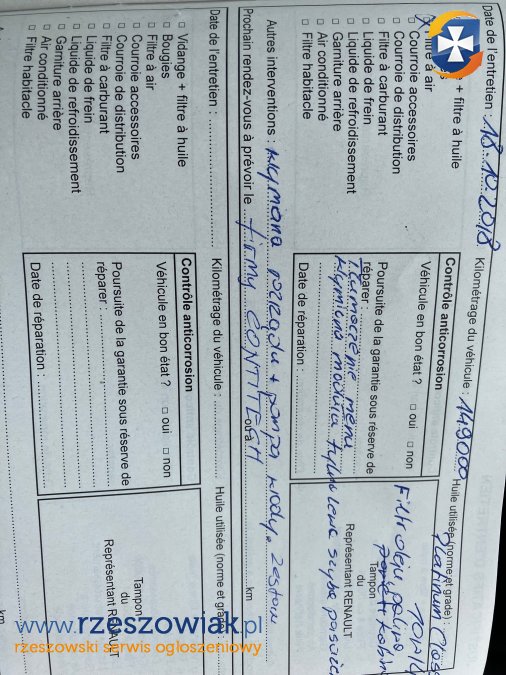 Date de l'entretien : 18.10.2018 Kilométrage du véhicule : 149000 Huile utilisée (norme et grade) :
Platinum
+ filtre à huile
Filtre à air
□ Courroie accessoires
□ Courroie de distribution
□ Filtre à carburant
□ Liquide de frein
□ Liquide de refroidissement
□ Garniture arrière
□ Air conditionné
□ Filtre habitacle
Contrôle anticorrosion
Véhicule en bon état ? □ oui □ non
Poursuite de la garantie sous réserve de
réparer :
Tłumaczenie menu
wymiana modułu tylna lewa szyba
Date de réparation :
Filtr oleju paliwa
Tampon
du
Représentant RENAULT
Autres interventions : wymiana rozrządu + pompa wody. zestaw
Prochain rendez-vous à prévoir le firmy CONTITECH ou à km
Date de l'entretien : Kilométrage du véhicule : Huile utilisée (norme et grade) :
□ Vidange + filtre à huile
□ Bougies
□ Filtre à air
□ Courroie accessoires
□ Courroie de distribution
□ Filtre à carburant
□ Liquide de frein
□ Liquide de refroidissement
□ Garniture arrière
□ Air conditionné
□ Filtre habitacle
Contrôle anticorrosion
Véhicule en bon état ? □ oui □ non
Poursuite de la garantie sous réserve de
réparer :
Date de réparation :
Tampon
du
Représentant RENAULT
km
www.rzeszowiak.pl
rzeszowski serwis ogłoszeniowy